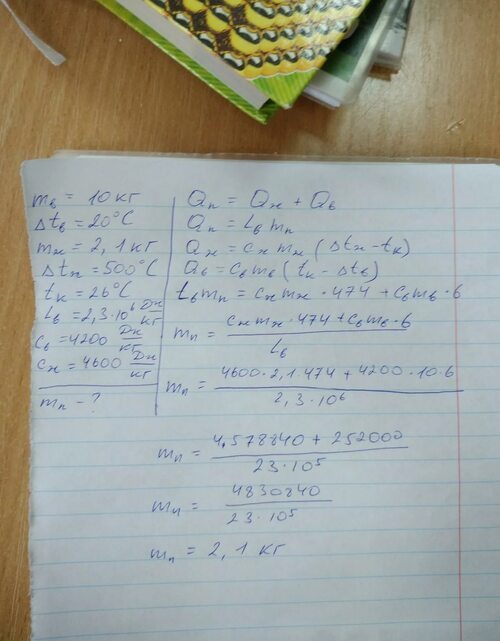 mв = 10 кг
Δtв = 20°C
mж = 2,1 кг
Δtж = 500°C
tк = 26°C
Lв = 2,3·10⁶ Дж/кг
cв = 4200 Дж/кг
cж = 4600 Дж/кг
mп - ?
Qп = Qж + Qв
Qп = Lв mп
Qж = cж mж (Δtж - tк)
Qв = cв mв (tк - Δtв)
Lв mп = cж mж · 474 + cв mв · 6
mп = (cж mж · 474 + cв mв · 6) / Lв
mп = (4600 · 2,1 · 474 + 4200 · 10 · 6) / (2,3 · 10⁶)
mп = (4,578840 + 252000) / (23 · 10⁵)
mп = 4830840 / (23 · 10⁵)
mп = 2,1 кг